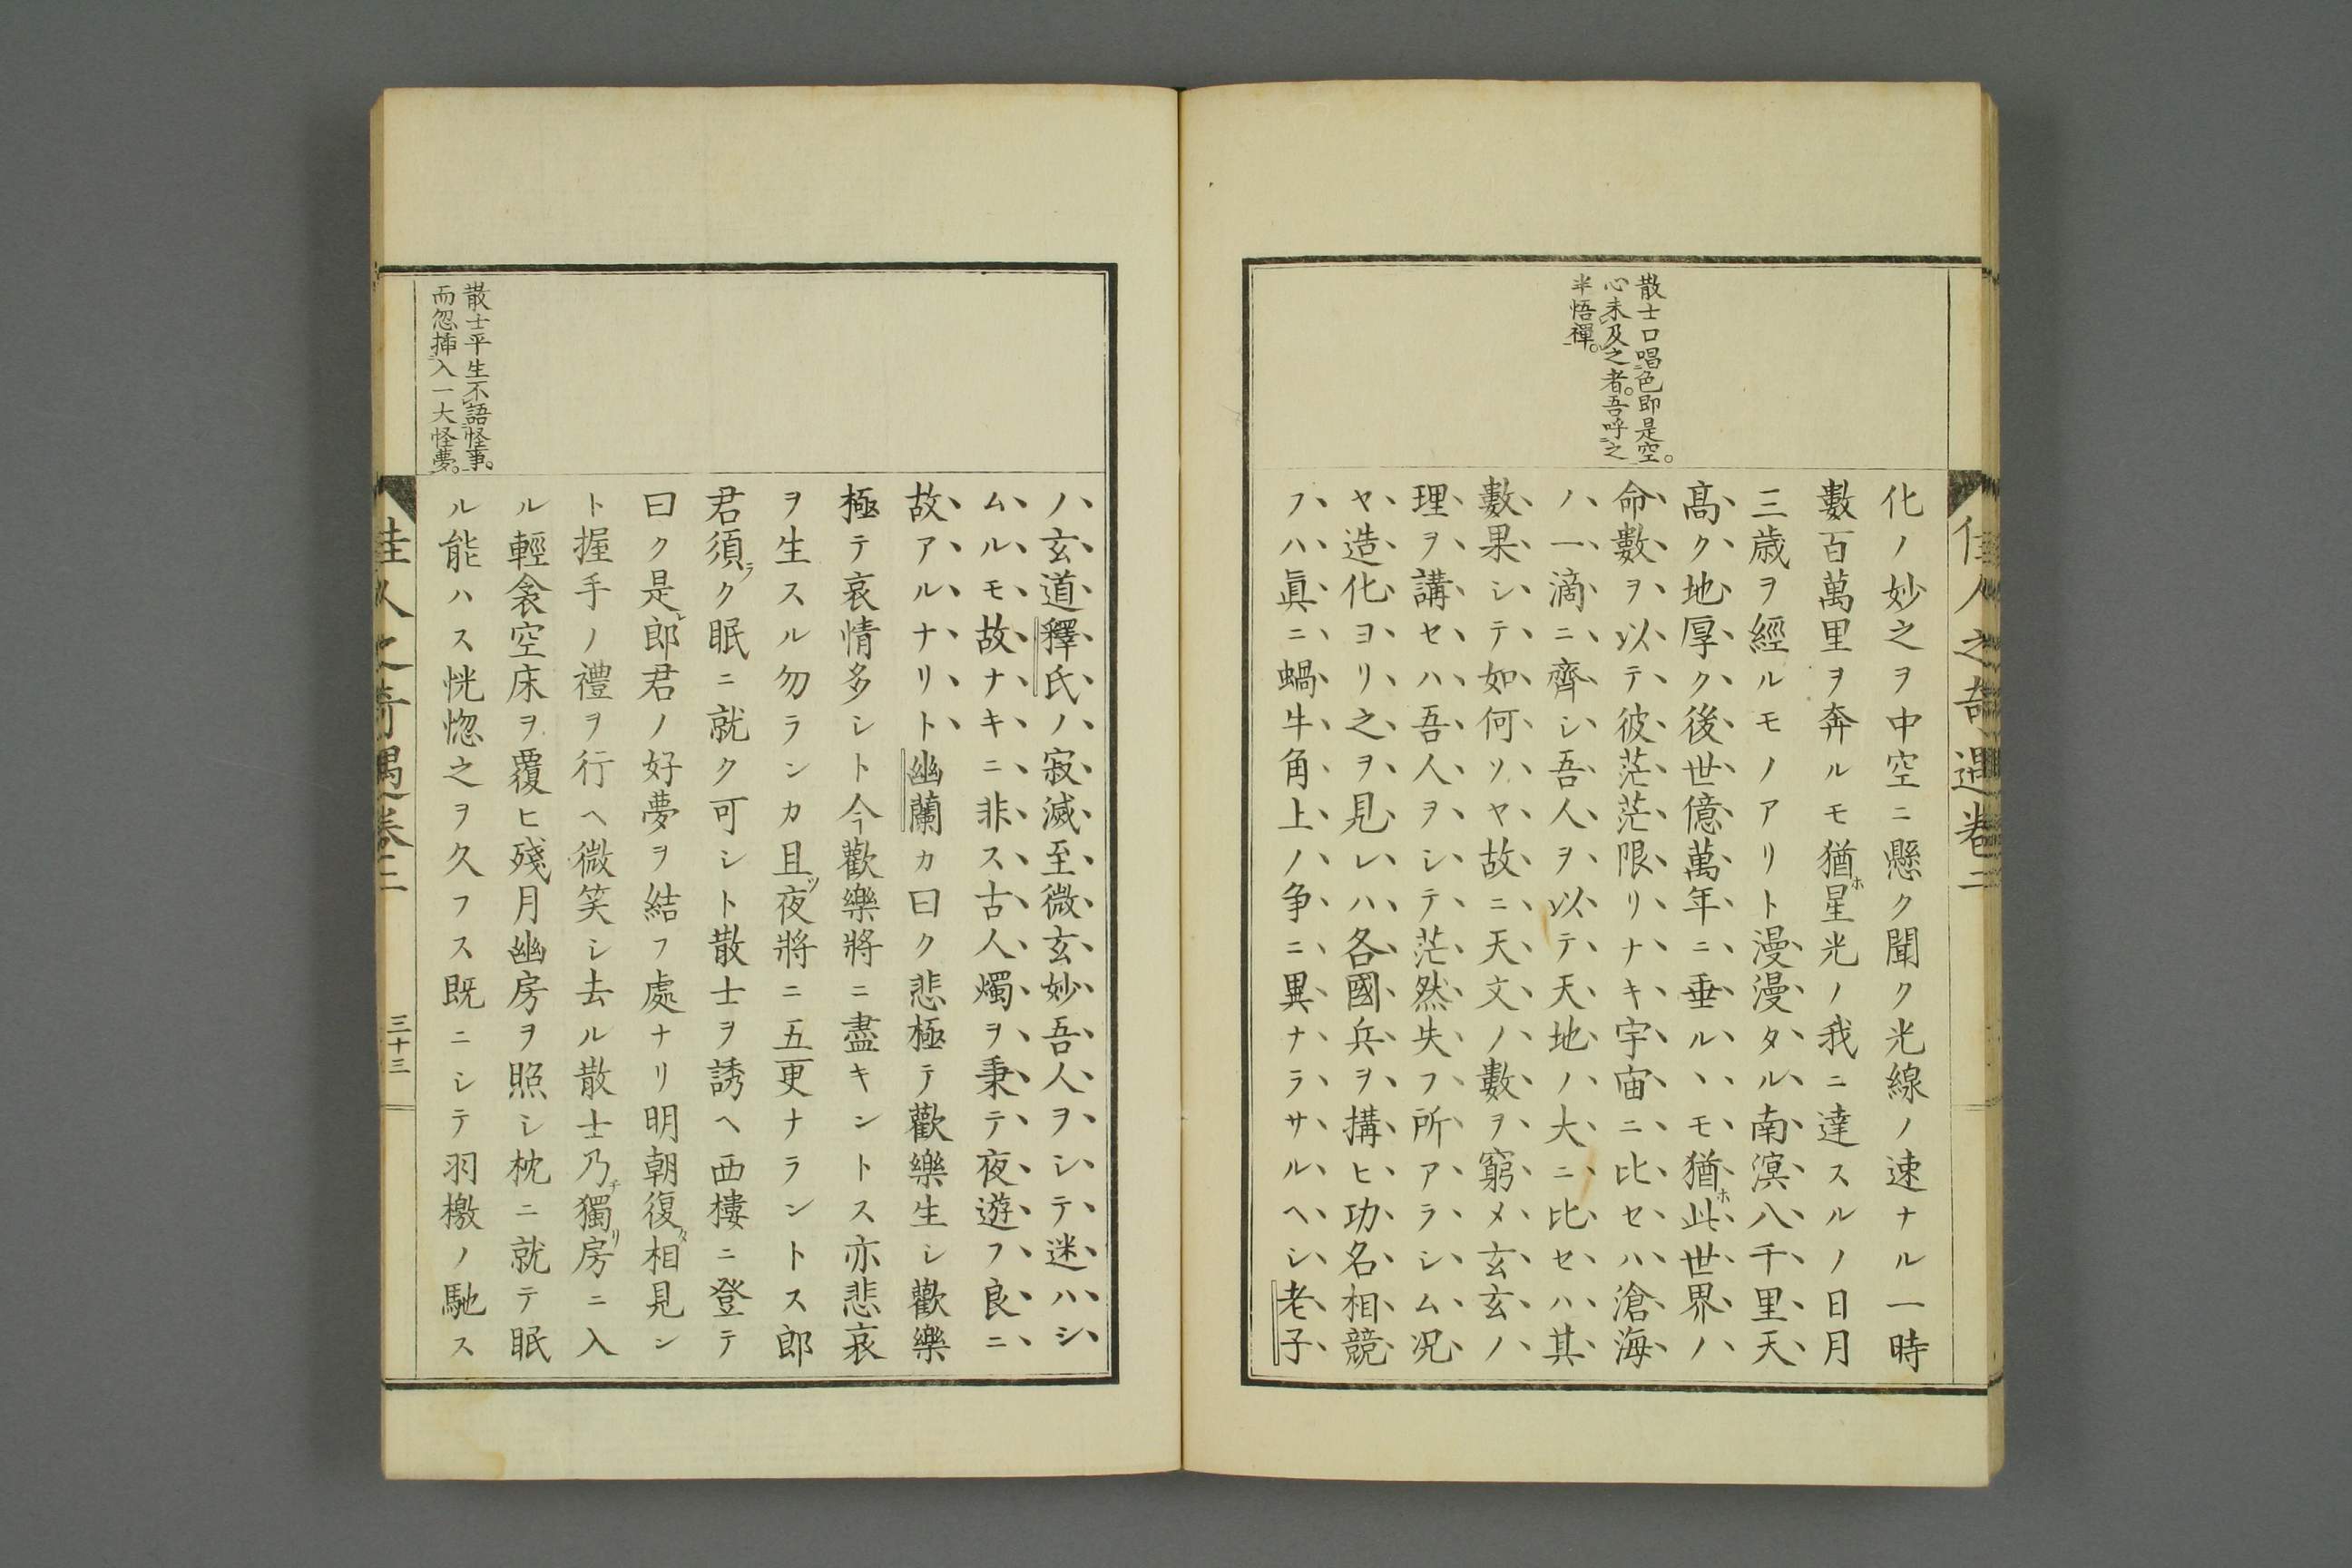 佳人之奇遇卷二
散士口唱色即是空。
心未及之者。吾呼之
半悟禪。
化ノ妙之ヲ中空ニ懸ク聞ク光線ノ速ナル一時
數百萬里ヲ奔ルモ猶ホ星光ノ我ニ達スルノ日月
三歳ヲ經ルモノアリト漫漫タル南溟八千里天
高ク地厚ク後世億萬年ニ垂ルヽモ猶ホ此世界ノ
命數ヲ以テ彼茫茫限リナキ宇宙ニ比セハ滄海
ノ一滴ニ齊シ吾人ヲ以テ天地ノ大ニ比セハ其
數果シテ如何ソヤ故ニ天文ノ數ヲ窮メ玄玄ノ
理ヲ講セハ吾人ヲシテ茫然失フ所アラシム况
ヤ造化ヨリ之ヲ見レハ各國兵ヲ搆ヒ功名相競
フハ眞ニ蝸牛角上ノ争ニ異ナラサルヘシ老子
ノ玄道釋氏ノ寂滅至微玄妙吾人ヲシテ迷ハシ
ムルモ故ナキニ非ス古人燭ヲ秉テ夜遊フ良ニ
故アルナリト幽蘭カ曰ク悲極テ歡樂生シ歡樂
極テ哀情多シト今歡樂將ニ盡キントス亦悲哀
ヲ生スル勿ランカ且ツ夜將ニ五更ナラントス郎
君須ラク眠ニ就ク可シト散士ヲ誘ヘ西樓ニ登テ
曰ク是レ郎君ノ好夢ヲ結フ處ナリ明朝復タ相見ン
ト握手ノ禮ヲ行ヘ微笑シ去ル散士乃チ獨リ房ニ入
ル輕衾空床ヲ覆ヒ殘月幽房ヲ照シ枕ニ就テ眠
ル能ハス恍惚之ヲ久フス既ニシテ羽檄ノ馳ス
散士平生不語怪事。
而忽挿入一大怪夢。
佳人之奇遇卷二
三十三